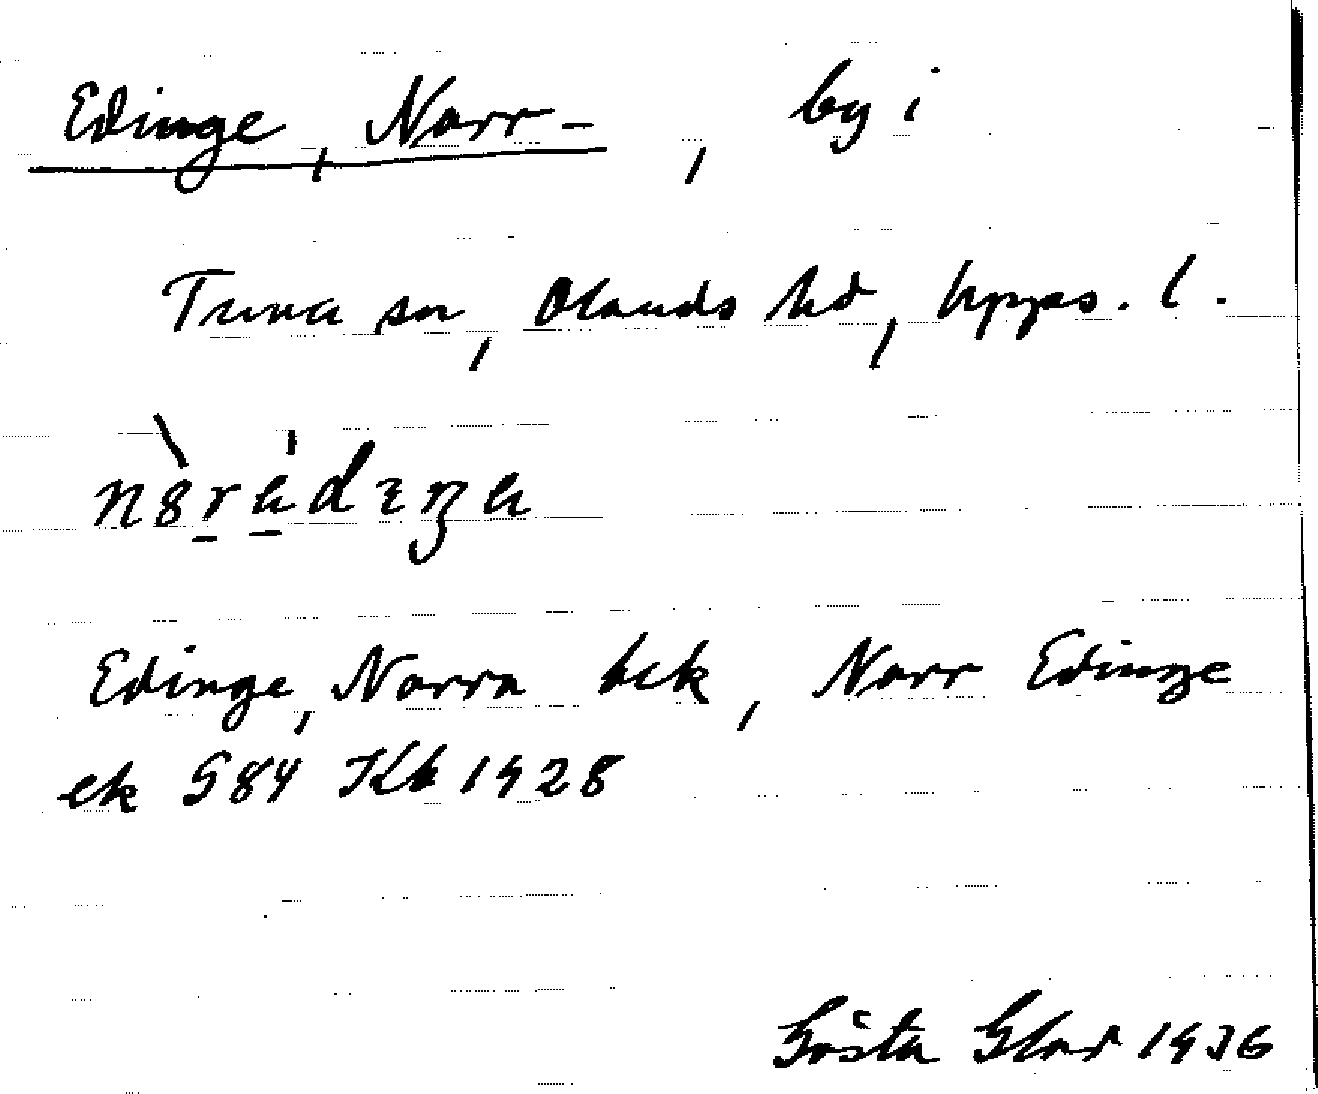 Edinge, Norr-, by i
Tuna sn, Olands hd, Upps. l.
Edinge, Norra bek, Norr Edinge
ek G84 Kb 1928
Gösta Glad 1936